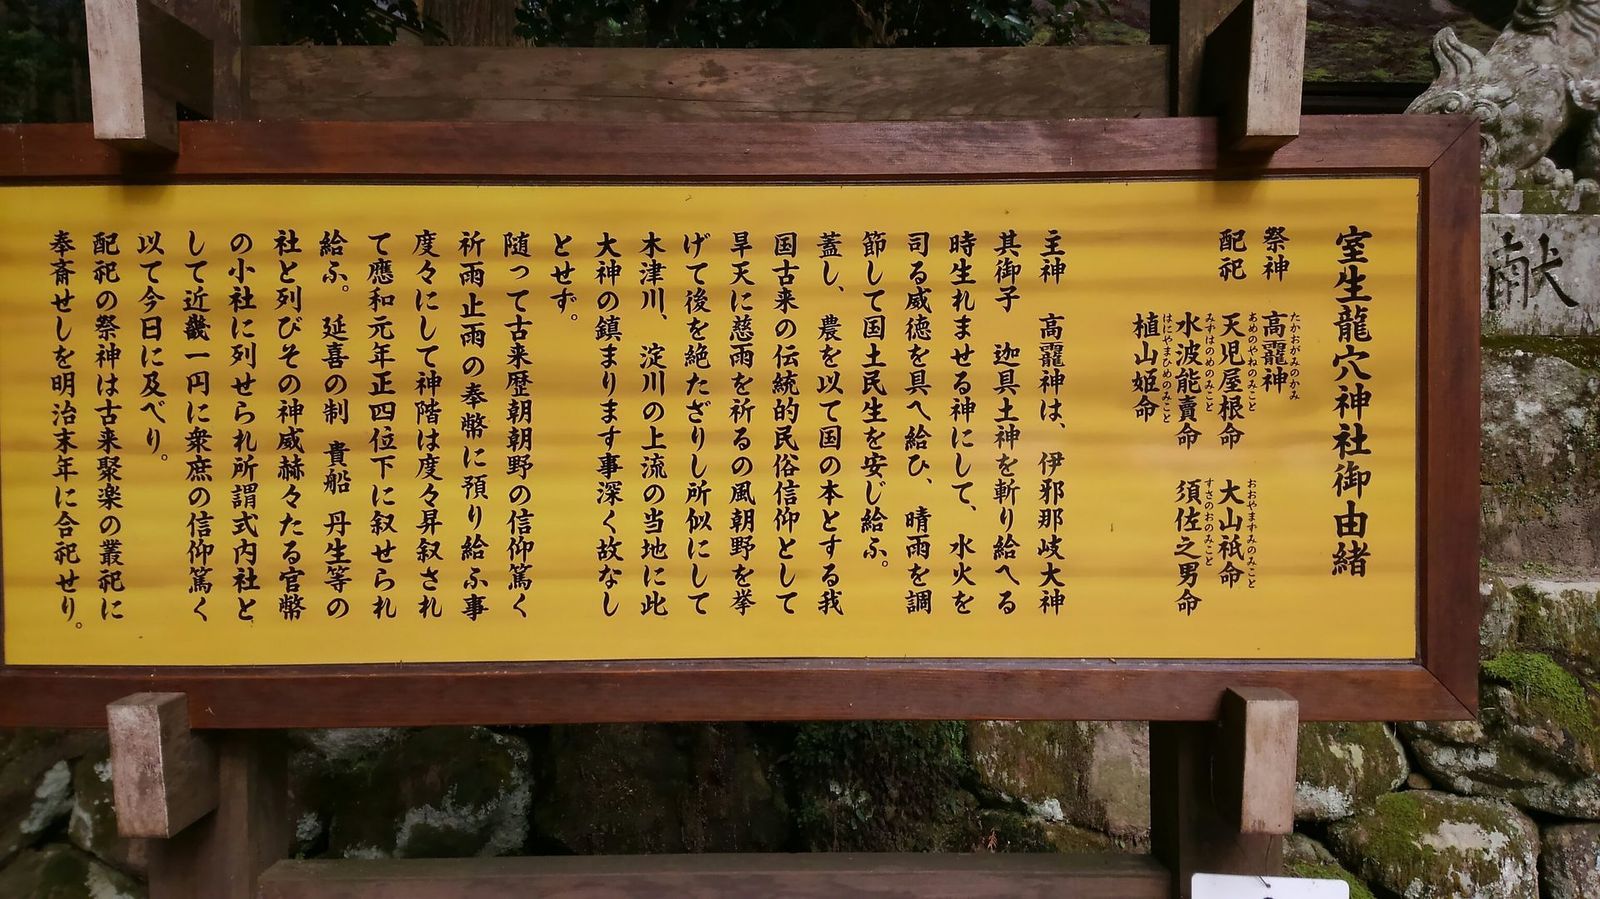 室生龍穴神社御由緒
祭神　高龗神
たかおがみのかみ
配祀　天児屋根命　大山祇命
あめのやねのみこと　おおやまずみのみこと
水波能賣命　須佐之男命
みずはのめのみこと　すさのおのみこと
植山姫命
はにやまひめのみこと
主神　高龗神は、伊邪那岐大神
其御子　迦具土神を斬り給へる
時生れませる神にして、水火を
司る威徳を具へ給ひ、晴雨を調
節して国土民生を安じ給ふ。
蓋し、農を以て国の本とする我
国古来の伝統的民俗信仰として
旱天に慈雨を祈るの風朝野を挙
げて後を絶たざりし所似にして
木津川、淀川の上流の当地に此
大神の鎮まります事深く故なし
とせず。
随って古来歴朝朝野の信仰篤く
祈雨止雨の奉幣に預り給ふ事
度々にして神階は度々昇叙され
て應和元年正四位下に叙せられ
給ふ。延喜の制　貴船　丹生等の
社と列びその神威赫々たる官幣
の小社に列せられ所謂式内社と
して近畿一円に衆庶の信仰篤く
以て今日に及べり。
配祀の祭神は古来聚楽の叢祀に
奉斎せしを明治末年に合祀せり。
献